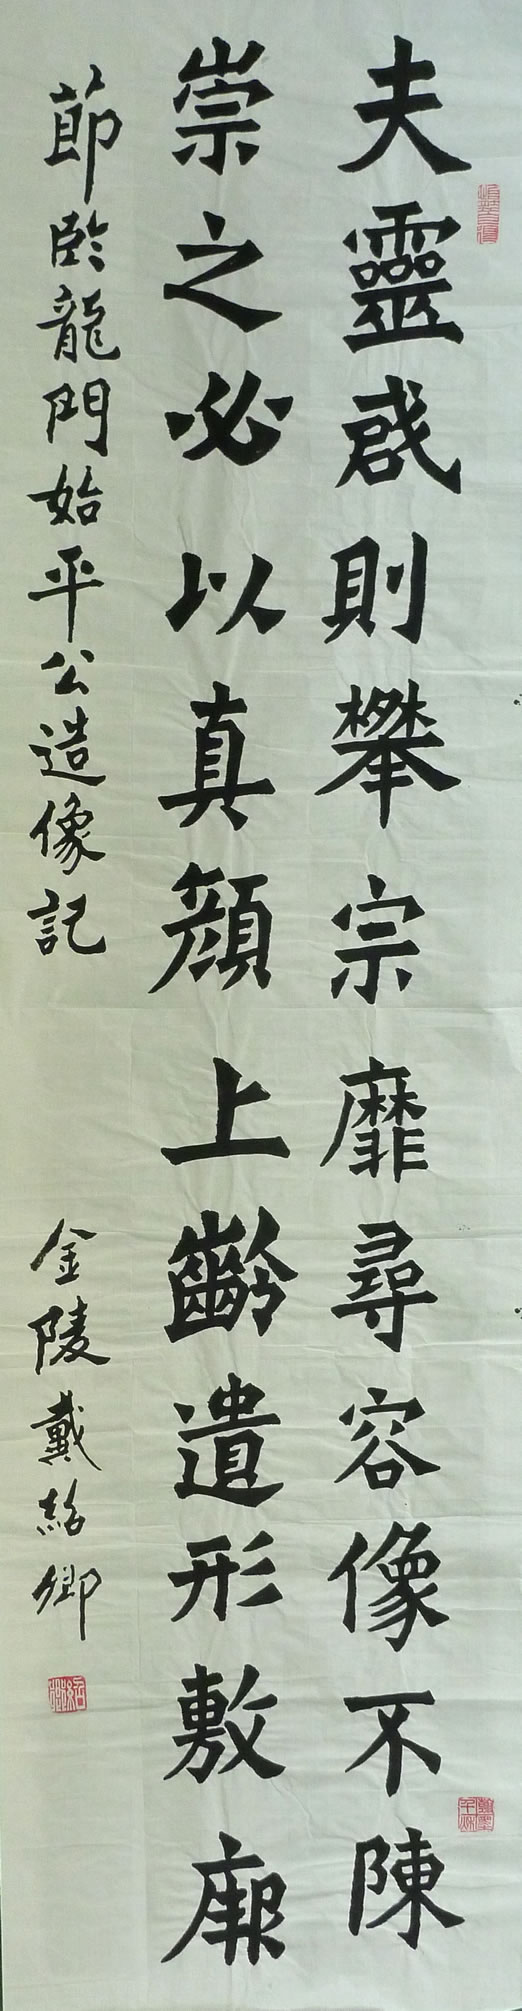 夫靈啟則攀宗靡尋容像不陳
崇之必以真顏上齡遺形敷
節臨龍門始平公造像記 金陵戴紹卿